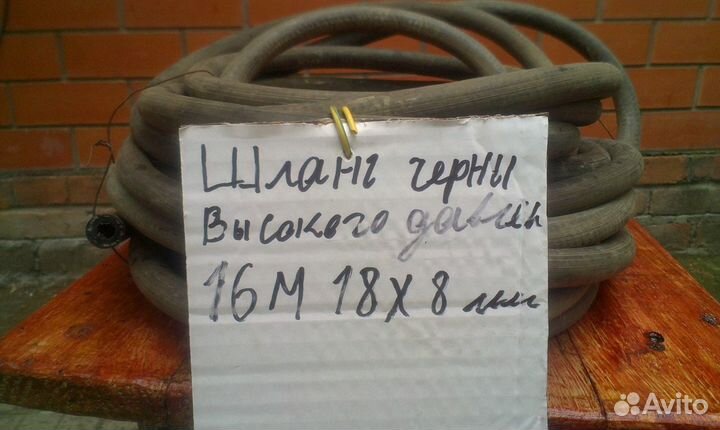 Шланг черны
Высокого давлен
16м 18х8 мм
Avito